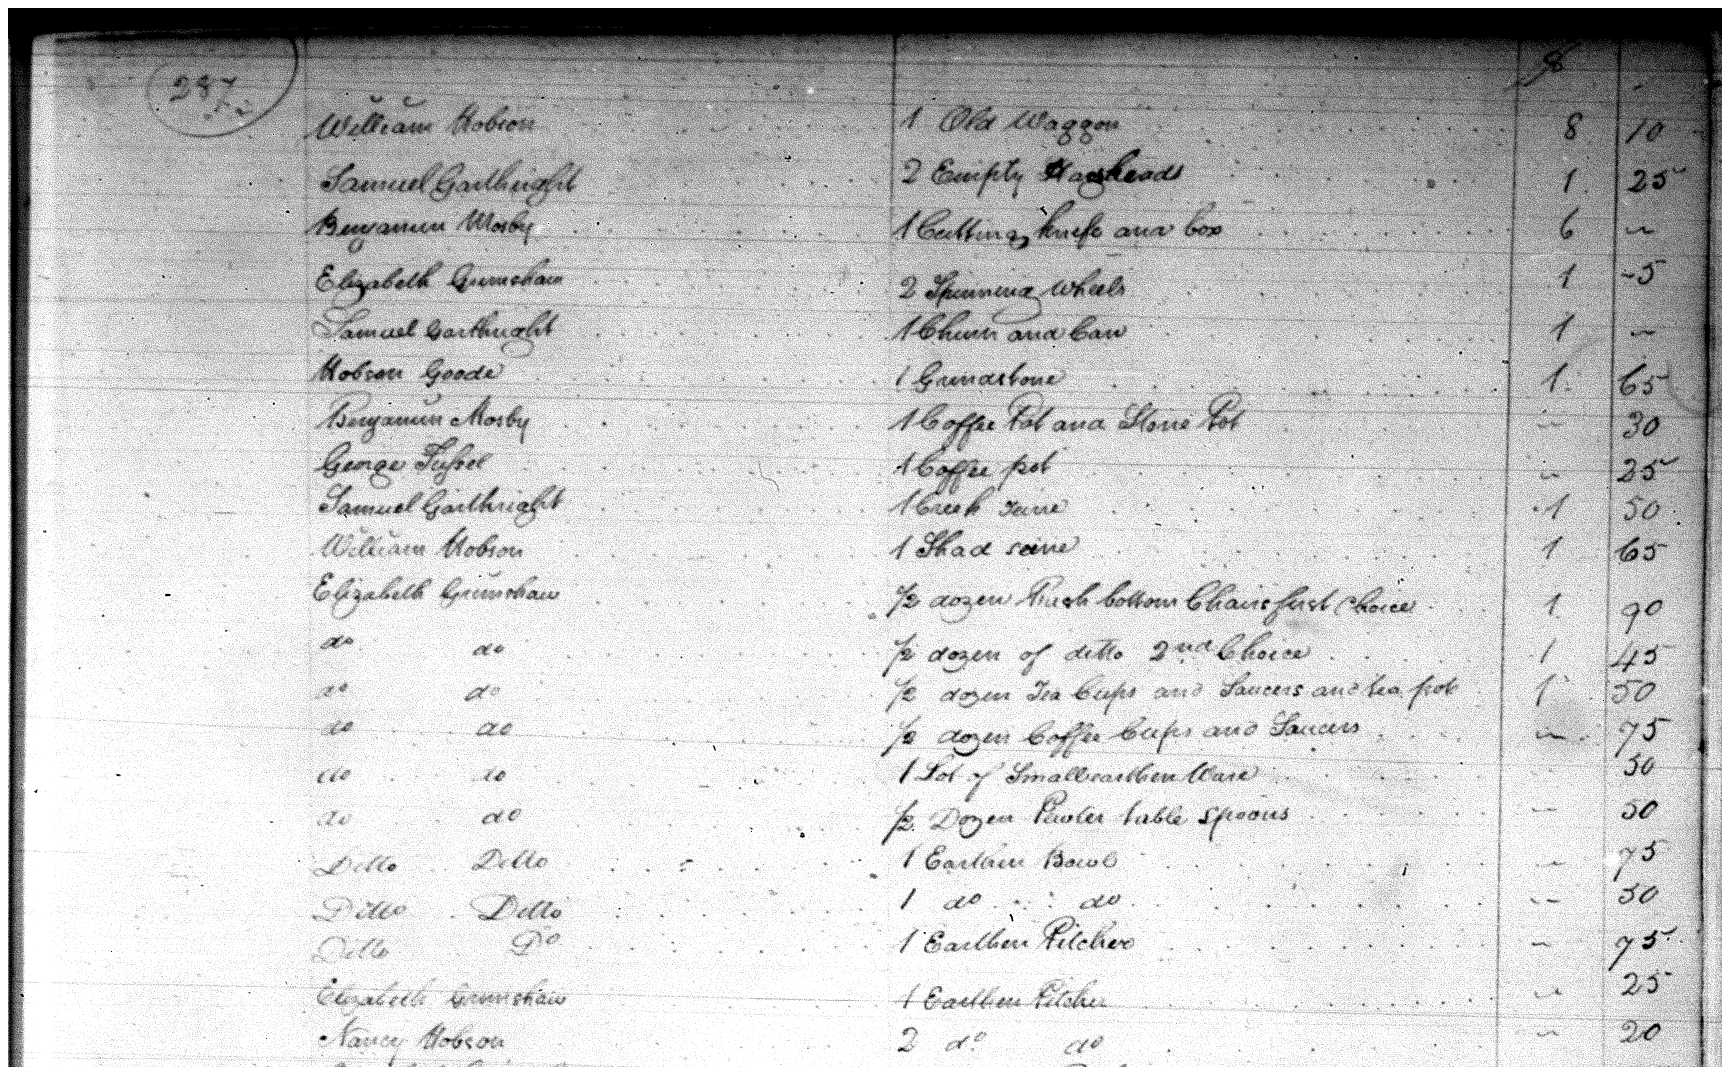 287
$
William Hobson 1 Old Waggon 8 10
Samuel Garthright 2 Empty Hogsheads 1 25
Benjamin Mosby 1 Cutting knife and box 6 ~
Elizabeth Grimshaw 2 Spinning Wheels 1 -5
Samuel Garthright 1 Churn and Can 1 ~
Hobson Goode 1 Grindstone 1 65
Benjamin Mosby 1 Coffee Pot and Stone Pot ~ 30
George 1 Coffee pot ~ 25
Samuel Garthright 1 Creek 1 50
William Hobson 1 Shad seine 1 65
Elizabeth Grimshaw 1/2 dozen Rush bottom Chairs first Choice 1 90
do do 1/2 dozen of ditto 2nd Choice 1 45
do do 1/2 dozen Tea Cups and Saucers and tea pot 1 50
do do 1/2 dozen Coffee Cups and Saucers ~ 75
do do 1 Lot of Small earthen Ware ~ 50
do do 1/2 Dozen Pewter table Spoons ~ 50
Ditto Ditto 1 Earthen Bowl ~ 75
Ditto Ditto 1 do do ~ 50
Ditto Do 1 Earthen Pitcher ~ 75
Elizabeth Grimshaw 1 Earthen Pitcher ~ 25
Nancy Hobson 2 do do ~ 20